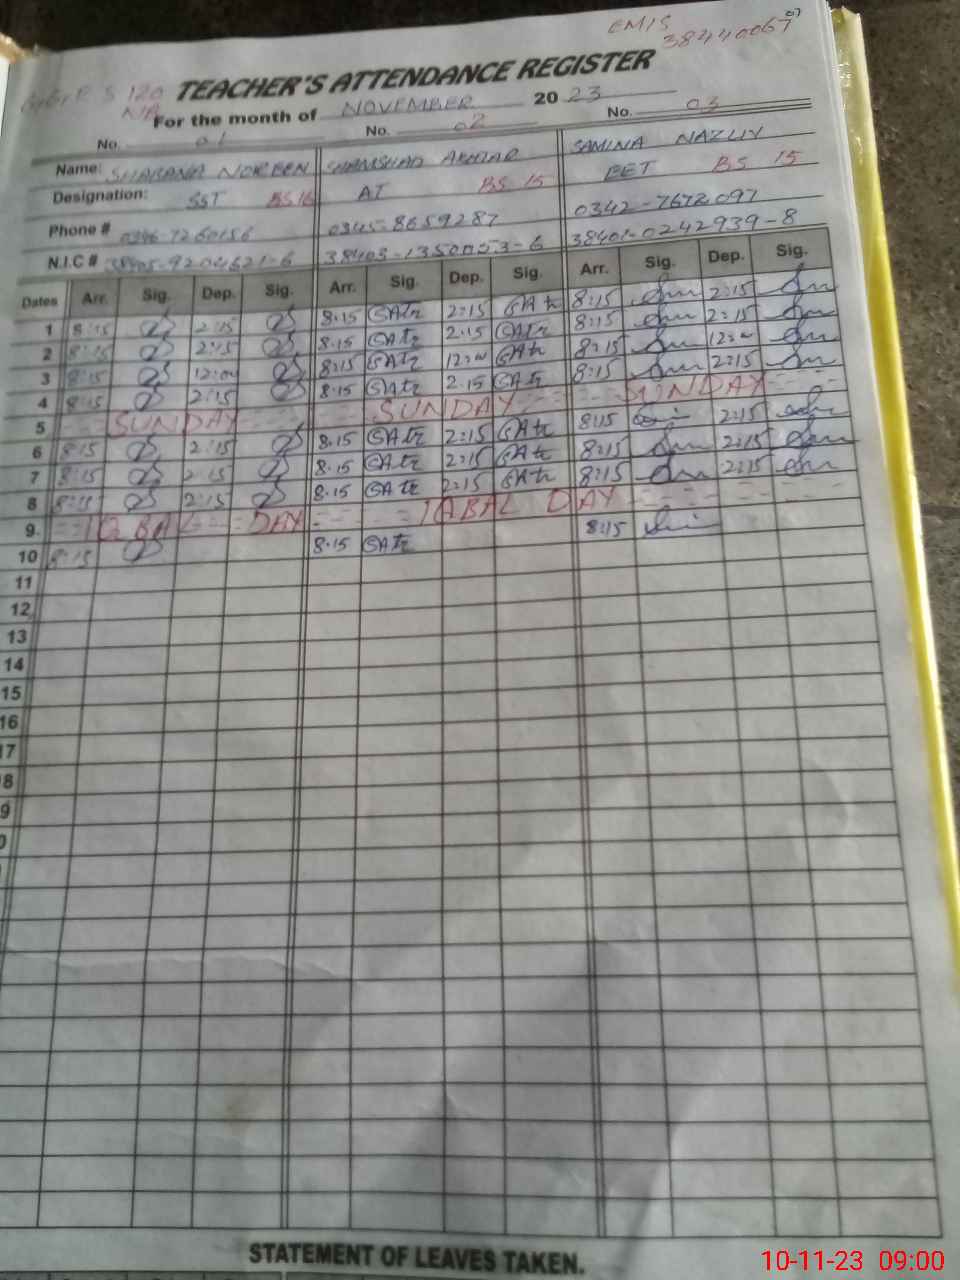 EMIS
38440067
07
G.G.E.S 120
N/B
TEACHER'S ATTENDANCE REGISTER
For the month of NOVEMBER 2023
No. 01 No. 02 No. 03
Name: SHABANA NOREEN SHAMSHAD AKHTAR SAMINA NAZLIV
Designation: SST BS 16 AT BS 15 EET BS 15
Phone # 0346-7260156 0345-8659287 0342-7672097
N.I.C # 38405-9204621-6 38403-1350053-6 38401-0242939-8
Dates Arr. Sig. Dep. Sig. Arr. Sig. Dep. Sig. Arr. Sig. Dep. Sig.
1 8:15 2:15 8:15 2:15 8:15 2:15
2 8:15 2:15 8:15 2:15 8:15 2:15
3 8:15 12:00 8:15 12:00 8:15 12:00
4 8:15 2:15 8:15 2:15 8:15 2:15
5 SUNDAY SUNDAY SUNDAY
6 8:15 2:15 8:15 2:15 8:15 2:15
7 8:15 2:15 8:15 2:15 8:15 2:15
8 8:15 2:15 8:15 2:15 8:15 2:15
9. IQBAL DAY IQBAL DAY
10 8:15 8:15 8:15
11
12
13
14
15
16
17
8
9
0
STATEMENT OF LEAVES TAKEN.
10-11-23 09:00